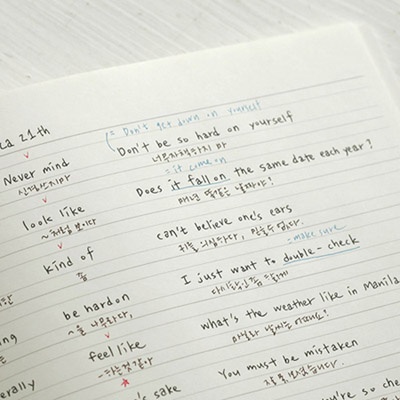 21th
= Don't get down on yourself
Never mind
Don't be so hard on yourself
신경쓰지마
너무자책하지 마
= it come on
Does it fall on the same date each year?
매년 똑같은 날짜야?
look like
~처럼 보이다
can't believe one's ears
귀를 의심하다, 믿을수 없다.
kind of
좀
= make sure
I just want to double-check
be hard on
~을 나무라다,
what's the weather like in Manila
마닐라 날씨는 어때요?
feel like
~하는것 같아
You must be mistaken
잘못 아셨습니다.
erally
's sake
're so